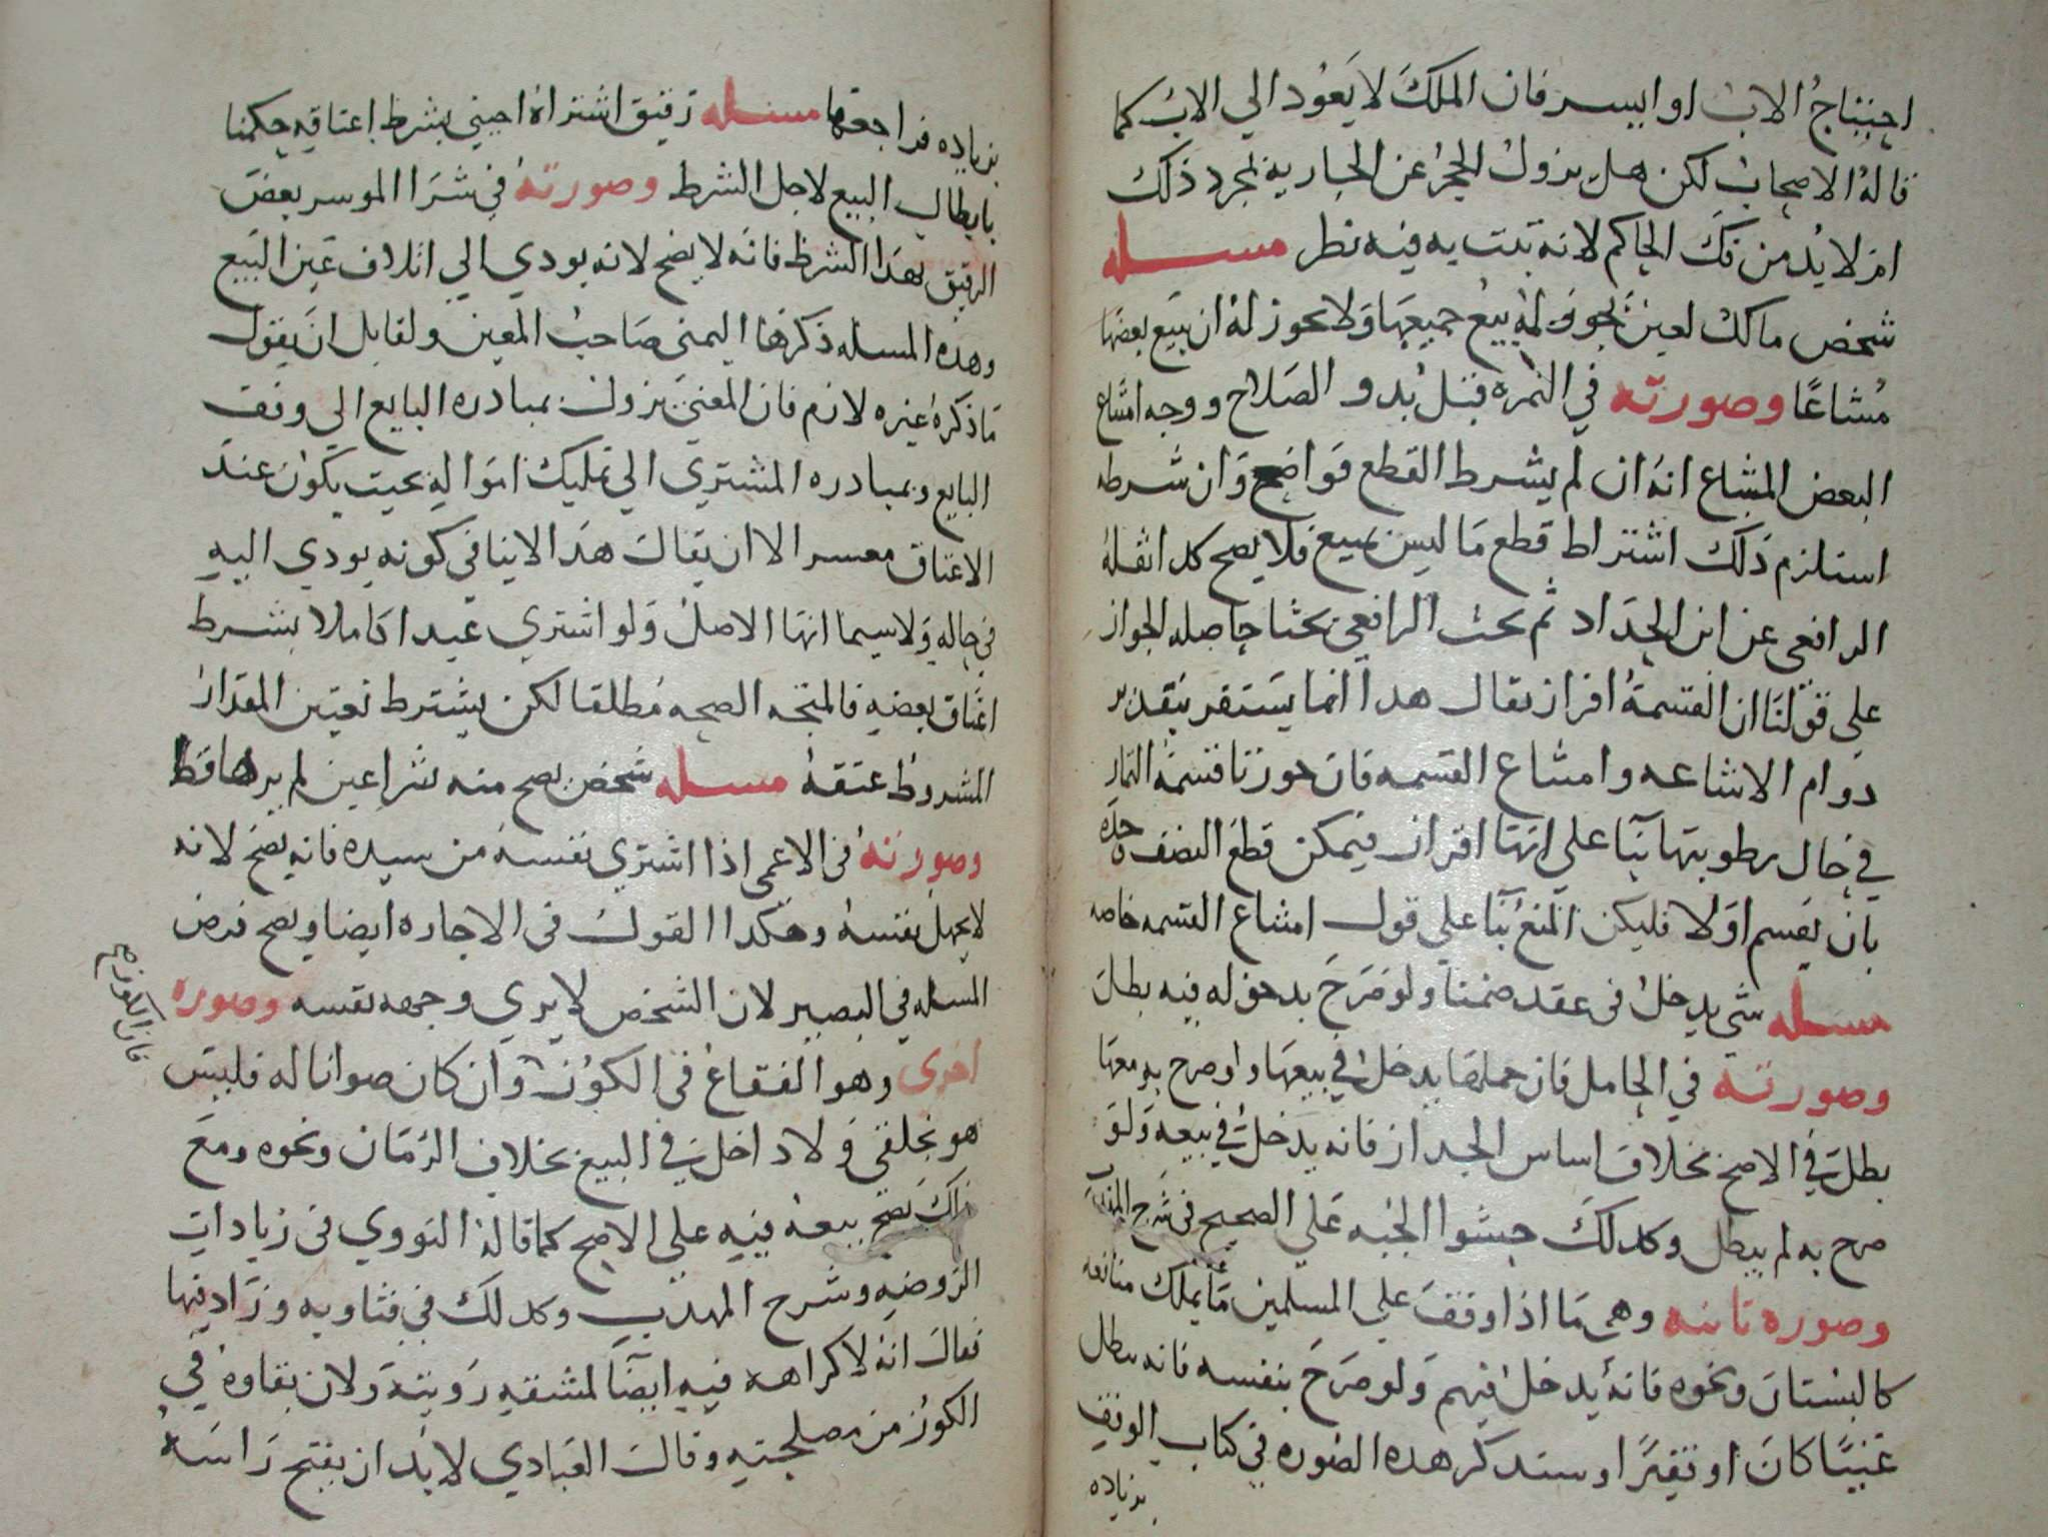 احتناج الاب او ايسر فان الملك لا يعود الي الاب كما
قاله الاصحاب لكن هل يزول الحجر عن الجارية بمجرد ذلك
ام لا بد من فك الحاكم لانه ثبت به فيه نظر مسله
شخص مالك لعين يجوز له بيع جميعها ولا يجوز له ان يبيع بعضها
مشاعا وصورته في الثمره قبل بدو الصلاح ووجه امتناع
البعض المشاع انه ان لم يشرط القطع فواضح وان شرطه
استلزم ذلك اشتراط قطع ما ليس بمبيع فلا يصح كد انقله
الرافعي عن ابن الحداد ثم بحث الرافعي بحثا حاصله الجواز
علي قولنا ان القسمة افراز نقال هدا انما يستقر بتقدير
دوام الاشاعه وامتناع القسمه فان جوزنا قسمة الثمار
في حال رطوبتها بنا علي انها افراز فيمكن قطع النصف وحده
بان يقسم اولا فليكن المنع بنا علي قول امتناع القسمه خاصه
مسله شي يدخل في عقد ضمنا ولو صرح بدخوله فيه بطل
وصورته في الحامل فان حملها يدخل في بيعها ولو صرح به معها
بطل في الاصح بخلاف اساس الجدار فانه يدخل في بيعه ولو
صرح به لم يبطل وكدلك حشوا الجبه علي الصحيح في شرح المهذب
وصوره ثانيه وهي ما اذا وقف علي المسلمين ما يملك منافعه
كالبستان ونحوه فانه يدخل فيهم ولو صرح بنفسه فانه يبطل
غنيا كان او فقيرا وستدكر هده الصوره في كتاب الوقف
بزياده
بزياده فراجعها مسله رقيق اشتراه اجنبي بشرط اعتاقه حكمنا
بابطال البيع لاجل الشرط وصورته في شرا الموسر بعض
الرقيق بهدا الشرط فانه لا يصح لانه يودي الي اتلاف عين البيع
وهده المسله ذكرها اليمني صاحب المعين ولقايل ان يقول
ما ذكره غيره لازم فان المعني يزول بمبادره البايع الي وقف
البايع وبمبادره المشتري الي تمليك امواله بحيث يكون عند
الاعتاق معسرا الا ان يقال هدا لا ينافي كونه يودي اليه
في حاله ولا سيما انها الاصل ولو اشتري عبدا كاملا بشرط
اعتاق بعضه فالمتجه الصحه مطلقا لكن يشترط تعيين المقدار
المشروط عتقه مسله شخص يصح منه شرا عين لم يرها قط
وصورته في الاعمي اذا اشتري نفسه من سيده فانه يصح لانه
لا يجهل نفسه وهكدا القول في الاجاره ايضا ويصح فرض
المسله في البصير لان الشخص لا يري وجهه نفسه وصوره
اخرى وهو الفقاع في الكوز وان كان صوانا له فليس
هو بخلقي ولا داخل في البيع بخلاف الرمان ونحوه ومع
ذلك يصح بيعه فيه علي الاصح كما قاله النووي في زيادات
الروضه وشرح المهدب وكدلك في فتاويه وزاد فيها
فقال انه لا كراهه فيه ايضا لمشقه رويته ولان بقاوه في
الكوز من مصلحته وقال العبادي لا بد ان يفتح راسه
فان الكوز صح